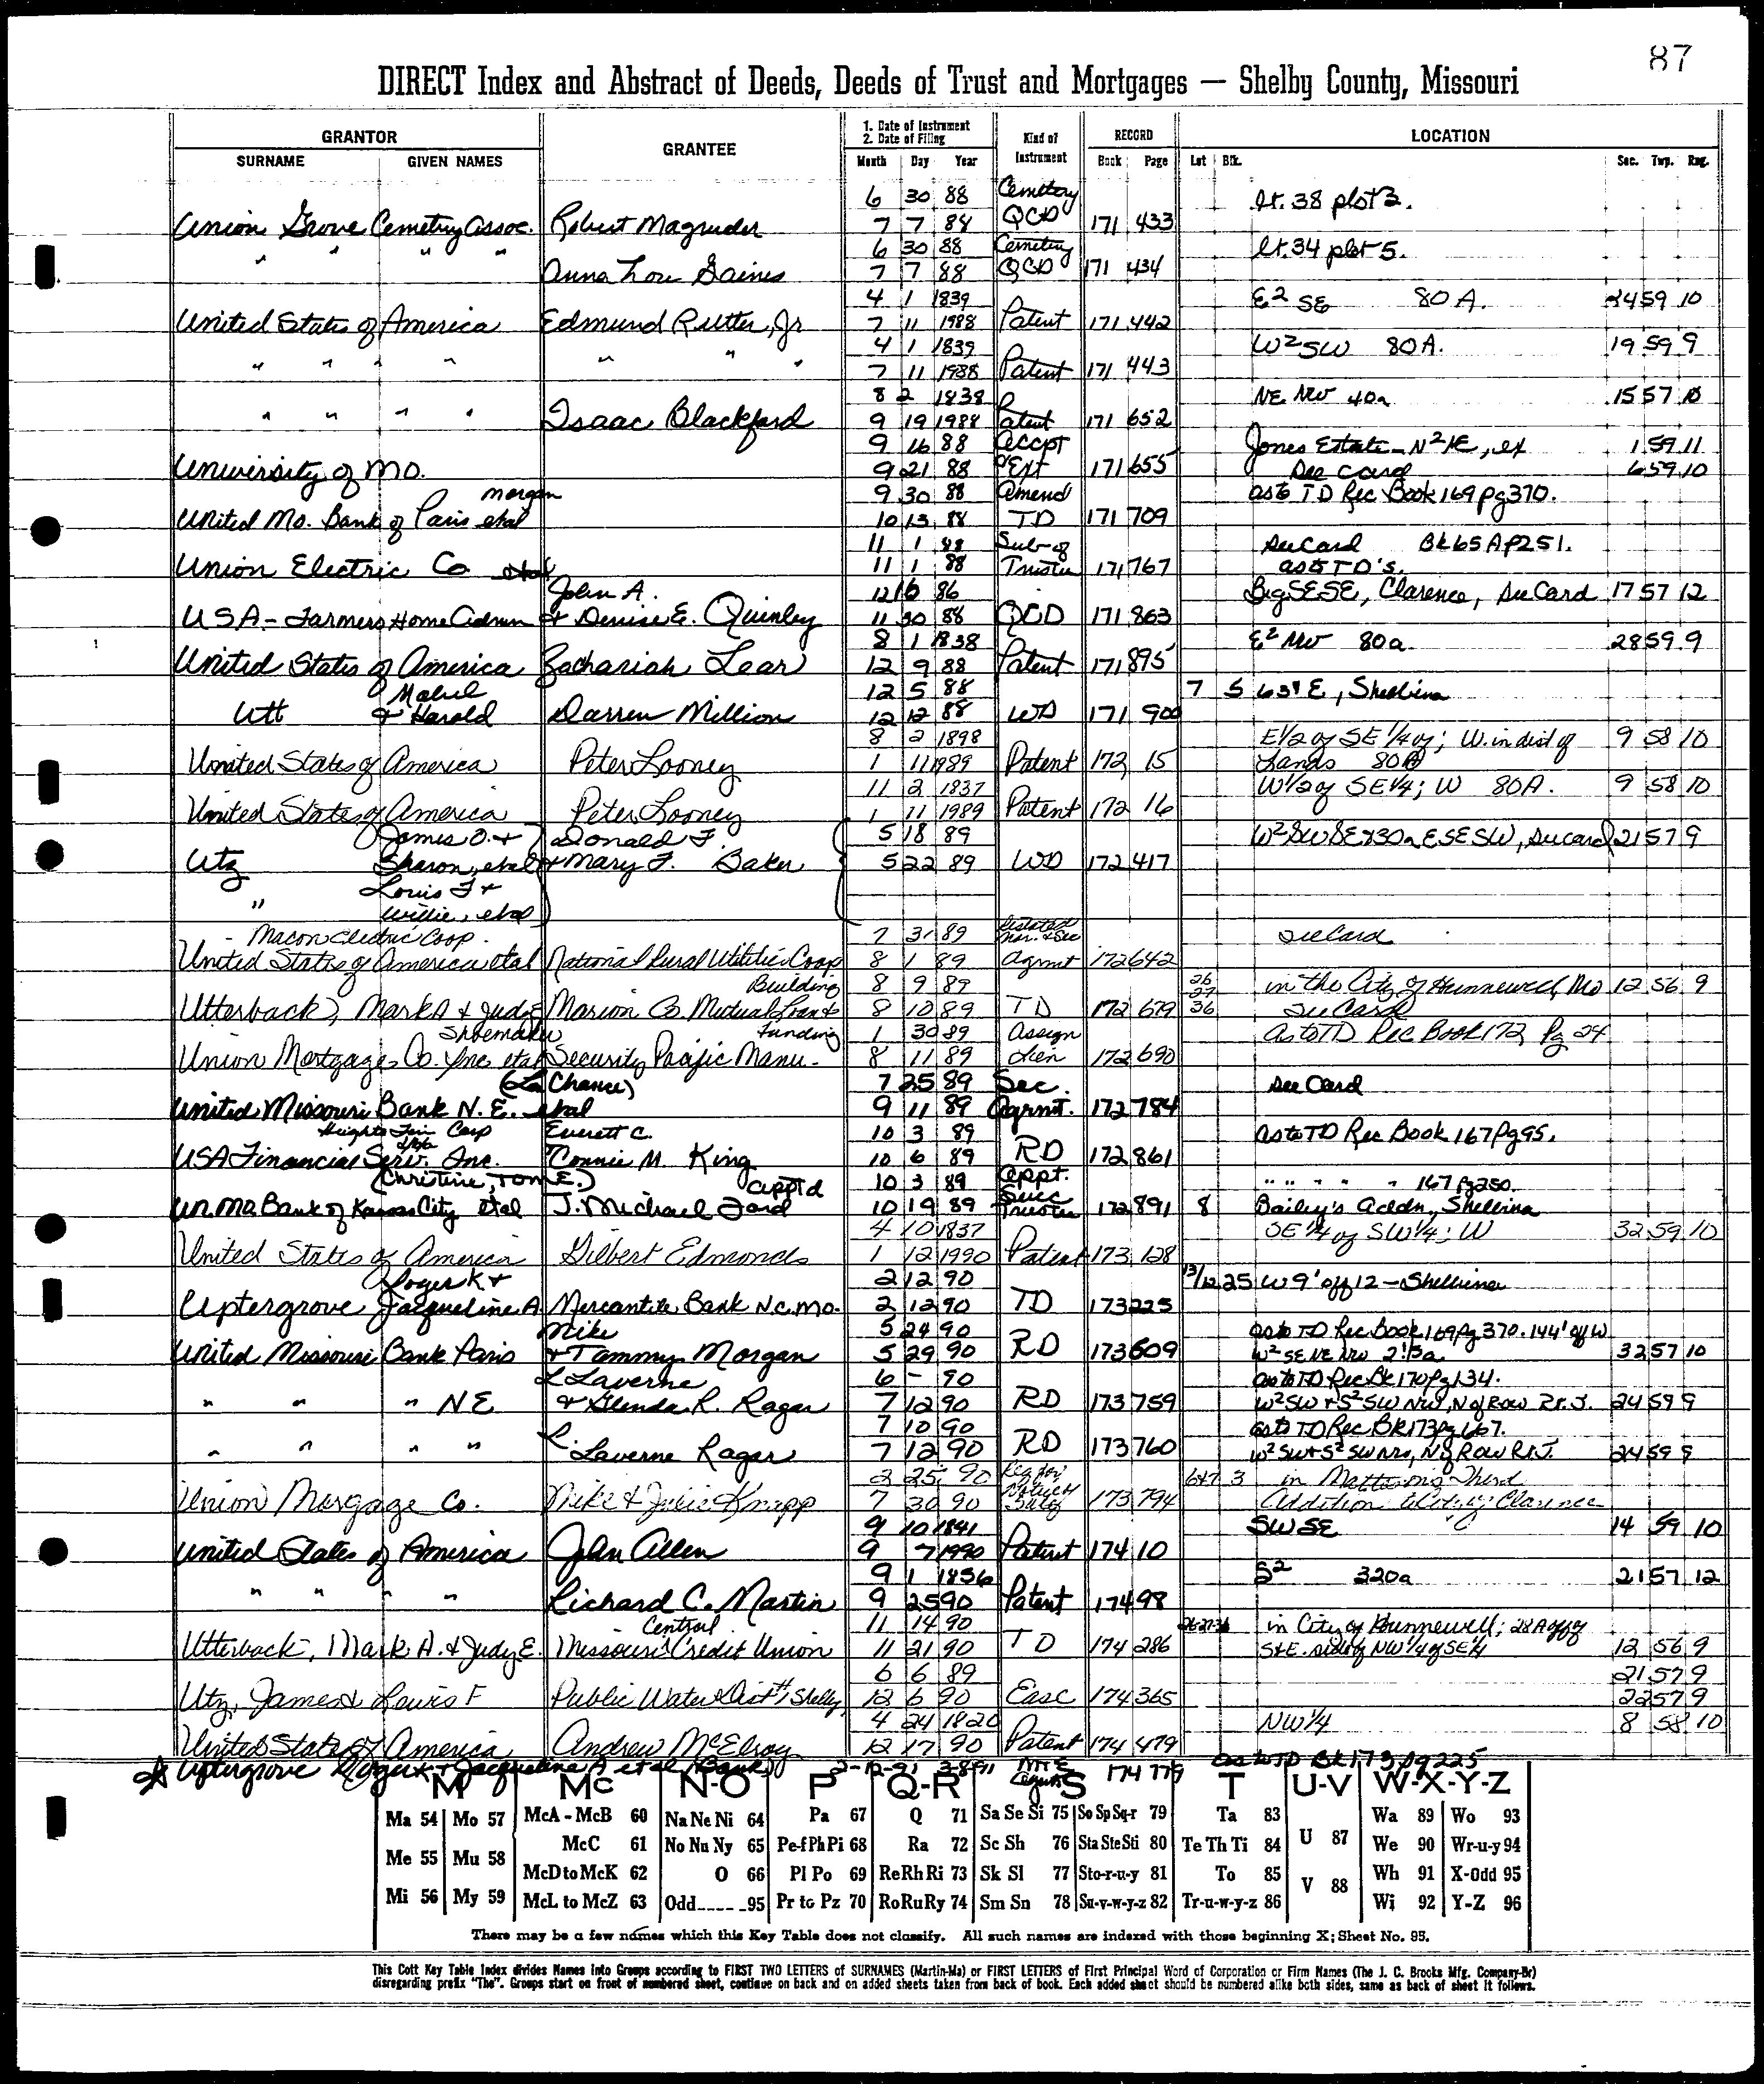 87
DIRECT Index and Abstract of Deeds, Deeds of Trust and Mortgages — Shelby County, Missouri
GRANTOR GRANTEE 1. Date of Instrument 2. Date of Filing Kind of Instrument RECORD LOCATION
SURNAME GIVEN NAMES Month Day Year Book Page Lot Blk. Sec. Twp. Rng.
6 30 88 Cemetery lt. 38 plot 3.
Union Grove Cemetry Assoc. Robert Magruder 7 7 88 QCD 171 433
" " " " 6 30 88 Cemetery lt. 34 plot 5.
Anna Lou Gaines 7 7 88 QCD 171 434
4 1 1839 E2 SE 80 A. 24 59 10
United States of America Edmund Rutter, Jr 7 11 1988 Patent 171 442
4 1 1839 W2 SW 80 A. 19 59 9
" " " " " " " 7 11 1988 Patent 171 443
8 2 1838 NE NW 40a 15 57 10
" " " " Isaac Blackford 9 19 1988 Patent 171 652
9 16 88 Accpt Jones Estate - N2 NE, ex 1 59 11
University of Mo. 9 21 88 Ext 171 655 See Card 6 59 10
Morgan 9 30 88 Amend as to TD Rec Book 169 pg 370.
United Mo. Bank of Paris etal 10 13 88 TD 171 709
11 1 88 Sub of See Card Bk 65A P251.
Union Electric Co 11 1 88 Trustee 171 767 as to TD's.
John A. 12 16 86 Beg SESE, Clarence, See Card 17 57 12
USA - Farmers Home Admn & Denise E. Quinley 11 30 88 QCD 171 863
8 1 1838 E2 NW 80a. 28 59 9
United States of America Zachariah Lear 12 9 88 Patent 171 895
Mabel 12 5 88 7 5 63' E, Shelbina
Utt & Harold Darren Million 12 12 88 WD 171 900
8 2 1898 E1/2 of SE 1/4 of; W. in dist of 9 58 10
United States of America Peter Looney 1 11 1989 Patent 172 15 Lands 80A
11 2 1837 W1/2 of SE1/4; W 80A. 9 58 10
United States of America Peter Looney 1 11 1989 Patent 172 16
James O. & Donald F. 5 18 89 W2 SW SE & 30a ESESW, See card 21 57 9
Utz Sharon, etal & Mary F. Baker 5 22 89 WD 172 417
" Louis F &
Willie, etal
Macon Electric Coop. 7 31 89 Restated Mor. & Sec See Card
United States of America etal National Rural Utilities Coop 8 1 89 Agrmt 172 642
Building 8 9 89 26 27 in the City of Hunnewell, Mo 12 56 9
Utterback, Mark A & Judy E Marion Co Mutual Loan & 8 10 89 TD 172 679 36 See Card
Shoemaker Funding 1 30 89 Assign As to TD Rec Book 172 Pg 24
Union Mortgage Co. Inc etal Security Pacific Manu- 8 11 89 Lien 172 690
(La Chance) 7 25 89 Sec. See Card
United Missouri Bank N.E. etal 9 11 89 Agrmt. 172 784
Heights Fin Corp Everett C. 10 3 89 As to TD Rec Book 167 Pg 95.
USA Financial Serv. Inc. Connie M. King 10 6 89 RD 172 861
(Christine, Tom E.) Appt'd 10 3 89 Appt. " " " " " 167 Pg 250.
Un. Mo. Bank of Kansas City etal J. Michael Ford 10 19 89 Succ Trustee 172 891 8 Bailey's Addn, Shelbina
4 10 1837 SE 1/4 of SW 1/4; W 32 59 10
United States of America Gilbert Edmonds 1 12 1990 Patent 173 128
Roger K & 2 12 90 13/12 25 W 9' off 12 - Shelbina
Uptergrove Jacqueline A Mercantile Bank N.C. Mo. 2 12 90 TD 173 225
Mike 5 24 90 as to TD Rec Book 169 Pg 370. 144' off W
United Missouri Bank Paris & Tammy Morgan 5 29 90 RD 173 609 W2 SE NE NW 32 57 10
L Laverne 6 - 90 as to TD Rec Bk 170 Pg 134.
" " " NE & Glenda R. Ragar 7 12 90 RD 173 759 W2 SW & S2 SW NW, N of ROW 24 59 9
L. 7 10 90 as to TD Rec BK 173 pg 667.
" " " " Laverne Ragar 7 12 90 RD 173 760 W2 SW & S2 SW NW, N of ROW 24 59 9
2 25 90 Req for 6&7 3 in Third
Union Morgage Co. Mike & Julie Knapp 7 30 90 Notice of Sale 173 794 Addition to City Clarence
9 10 1841 SW SE 14 59 10
United States of America John Allen 9 7 1990 Patent 174 10
9 1 1856 S2 320a 21 57 12
" " " " Richard C. Martin 9 25 90 Patent 174 98
Central 11 14 90 26-27-36 in City of Hunnewell; 28A off of
Utterback, Mark A. & Judy E. Missouri Credit Union 11 21 90 TD 174 286 S & E. side of NW 1/4 of SE 1/4 12 56 9
6 6 89 21 57 9
Utz, James & Louis F Public Water Dist #1 Shelby 12 6 90 Ease 174 365 22 57 9
4 24 1820 NW 1/4 8 58 10
United States of America Andrew McElroy 12 17 90 Patent 174 479
Uptergrove Roger K & Jacqueline A et al (Bank) 2-12-91 3 8 91 174 779 as to TD Bk 173 pg 225
M Mc N-O P Q-R S T U-V W-X-Y-Z
Ma 54 Mo 57 McA - McB 60 Na Ne Ni 64 Pa 67 Q 71 Sa Se Si 75 So Sp Sq-r 79 Ta 83 U 87 Wa 89 Wo 93
McC 61 No Nu Ny 65 Pe-f Ph Pi 68 Ra 72 Sc Sh 76 Sta Ste Sti 80 Te Th Ti 84 We 90 Wr-u-y 94
Me 55 Mu 58 McD to McK 62 O 66 Pl Po 69 Re Rh Ri 73 Sk Sl 77 Sto-r-u-y 81 To 85 V 88 Wh 91 X-Odd 95
Mi 56 My 59 McL to McZ 63 Odd 95 Pr to Pz 70 Ro Ru Ry 74 Sm Sn 78 Su-v-w-y-z 82 Tr-u-w-y-z 86 Wi 92 Y-Z 96
There may be a few names which this Key Table does not classify. All such names are indexed with those beginning X; Sheet No. 95.
This Cott Key Table Index divides Names into Groups according to FIRST TWO LETTERS of SURNAMES (Martin-Ma) or FIRST LETTERS of First Principal Word of Corporation or Firm Names (The J. C. Brooks Mfg. Company-Br)
disregarding prefix "The". Groups start on front of numbered sheet, continue on back and on added sheets taken from back of book. Each added sheet should be numbered alike both sides, same as back of sheet it follows.